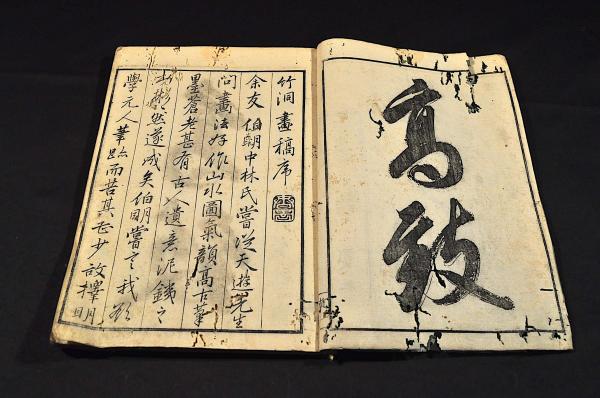 高致
竹洞畫稿序
余友伯朙中林氏嘗從天遊先生
問畫法好作山水圖氣韻高古筆
墨蒼老甚有古人遺意泥錢之
彬然遂成矣伯朙嘗言我欲
學元人筆跡而苦其少故擇明